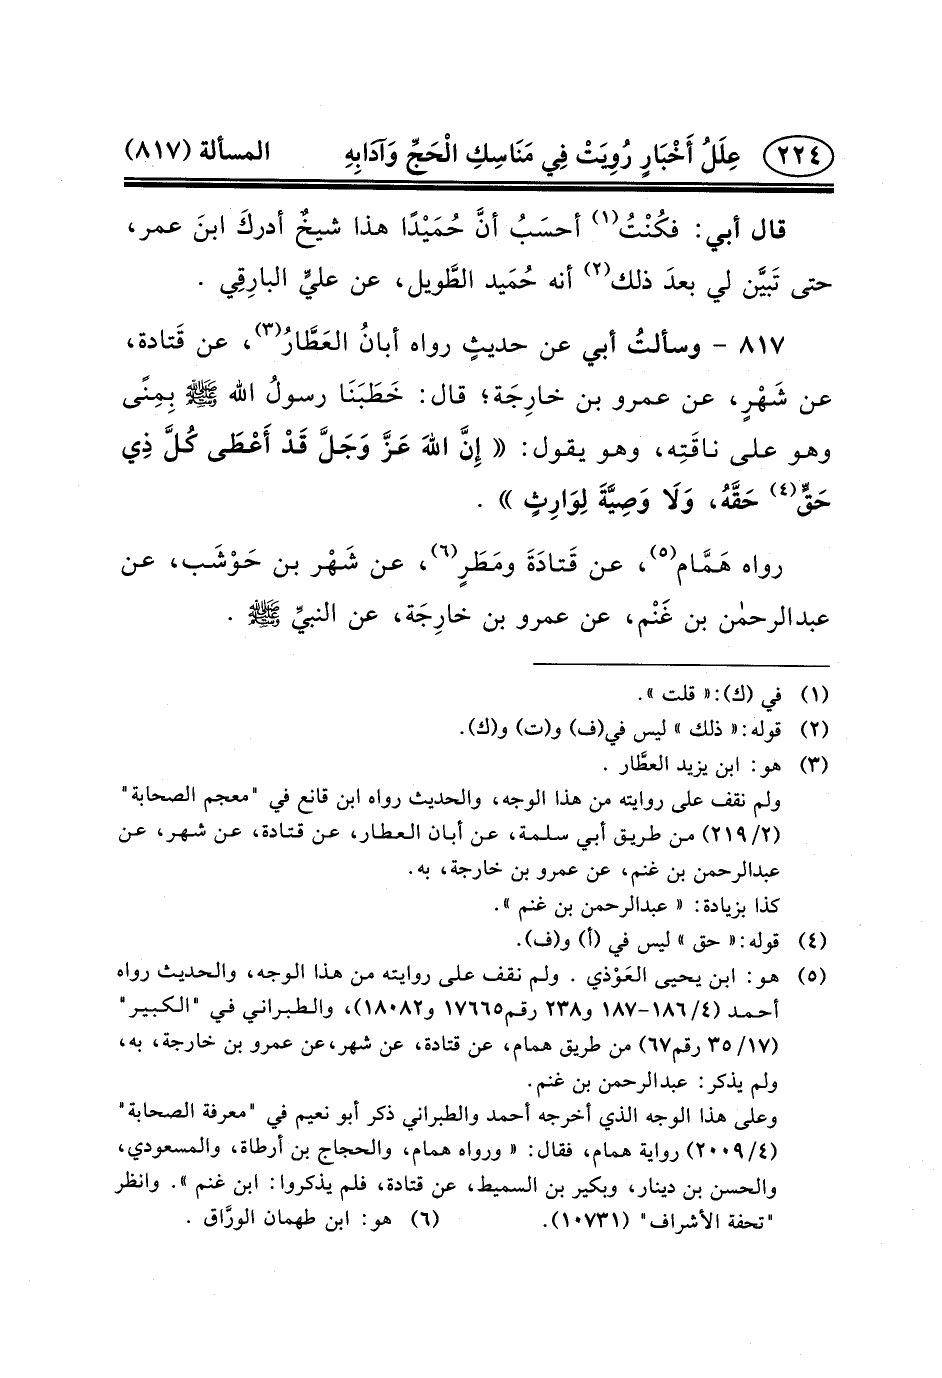 ٢٢٤ عِلَلُ أَخْبَارٍ رُوِيَتْ فِي مَنَاسِكِ الْحَجِّ وَآدَابِهِ المسألة (٨١٧)
قال أبي: فكُنْتُ(١) أحسَبُ أنَّ حُمَيْدًا هذا شيخٌ أدركَ ابنَ عمر،
حتى تَبَيَّن لي بعدَ ذلك(٢) أنه حُمَيد الطَّويل، عن عليٍّ البارِقي .
٨١٧ - وسألتُ أبي عن حديثٍ رواه أبانُ العَطَّارُ(٣)، عن قَتادة،
عن شَهْرٍ، عن عمرو بن خارِجَة؛ قال: خَطَبَنَا رسولُ الله ﷺ بِمِنًى
وهو على ناقَتِه، وهو يقول: « إِنَّ اللهَ عَزَّ وَجَلَّ قَدْ أَعْطَى كُلَّ ذِي
حَقٍّ(٤) حَقَّهُ، وَلَا وَصِيَّةَ لِوَارِثٍ » .
رواه هَمَّام(٥)، عن قَتادَةَ ومَطَرٍ(٦)، عن شَهْر بن حَوْشَب، عن
عبدالرحمٰن بن غَنْم، عن عمرو بن خارِجَة، عن النبيِّ ﷺ .
(١) في (ك): « قلت ».
(٢) قوله: « ذلك » ليس في (ف) و(ت) و(ك).
(٣) هو: ابن يزيد العطَّار .
ولم نقف على روايته من هذا الوجه، والحديث رواه ابن قانع في "معجم الصحابة"
(٢/ ٢١٩) من طريق أبي سلمة، عن أبان العطار، عن قتادة، عن شهر، عن
عبدالرحمن بن غنم، عن عمرو بن خارجة، به.
كذا بزيادة: « عبدالرحمن بن غنم ».
(٤) قوله: « حق » ليس في (أ) و(ف).
(٥) هو: ابن يحيى العَوْذي . ولم نقف على روايته من هذا الوجه، والحديث رواه
أحمد (٤/ ١٨٦-١٨٧ و٢٣٨ رقم١٧٦٦٥ و١٨٠٨٢)، والطبراني في "الكبير"
(١٧/ ٣٥ رقم٦٧) من طريق همام، عن قتادة، عن شهر، عن عمرو بن خارجة، به،
ولم يذكر: عبدالرحمن بن غنم.
وعلى هذا الوجه الذي أخرجه أحمد والطبراني ذكر أبو نعيم في "معرفة الصحابة"
(٤/ ٢٠٠٩) رواية همام، فقال: « ورواه همام، والحجاج بن أرطاة، والمسعودي،
والحسن بن دينار، وبكير بن السميط، عن قتادة، فلم يذكروا: ابن غنم ». وانظر
"تحفة الأشراف" (١٠٧٣١). (٦) هو: ابن طهمان الورَّاق .